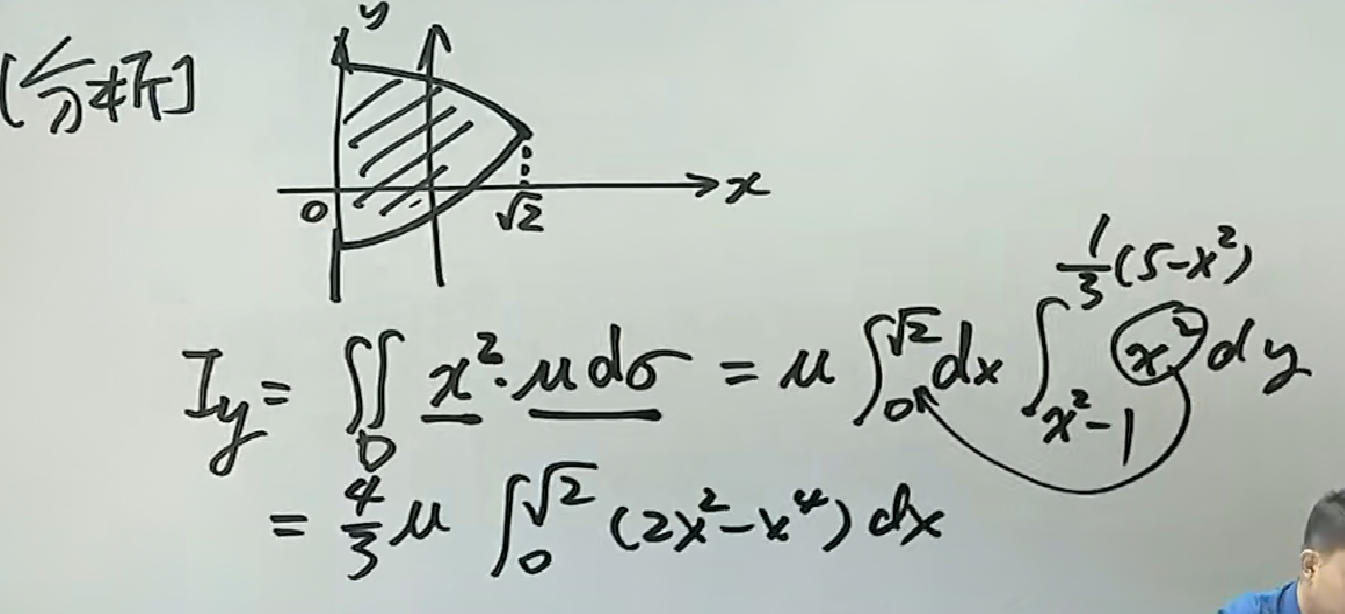 [分析]
y
0
√2
x
I_y = ∬_D x²·μdσ = μ∫_0^√2 dx ∫_{x²-1}^{1/3(5-x²)} x² dy
= 4/3 μ ∫_0^√2 (2x²-x⁴) dx